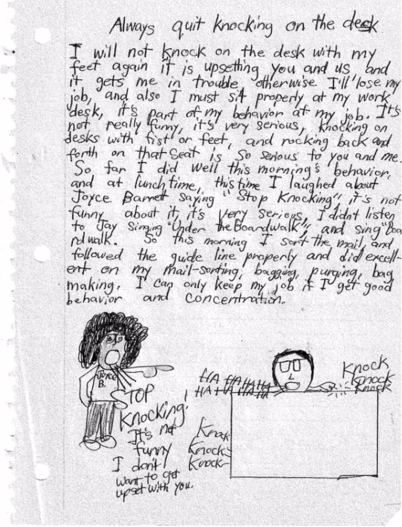 Always quit knocking on the desk
I will not knock on the desk with my
feet again it is upsetting you and us and
it gets me in trouble otherwise I'll lose my
job, and also I must sit properly at my work
desk, it's part of my behavior at my job. It's
not really funny, it's very serious, knocking on
desks with fist or feet, and rocking back and
forth on that seat is so serious to you and me.
So far I did well this morning's behavior,
and at lunch time, this time I laughed about
Joyce Barnet saying "Stop Knocking", it's not
funny about it, it's very serious, I didnt listen
to Jay siming "Under the Boardwalk", and sing "boa
rdwalk. So this morning I sort the mail, and
followed the guide line properly and did excell-
ent on my mail-sorting, bagging, purging, bag
making. I can only keep my job if I get good
behavior and concentration.
JOYCE
B.
STOP
Knocking!
It's not
funny
I don't
want to get
upset with you.
HA HA HA HA
HA HA HA HA
Knock
Knock
Knock
Knock
Knock
Knock